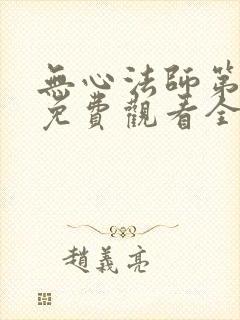 無心法師第
免費觀看全
趙義亮